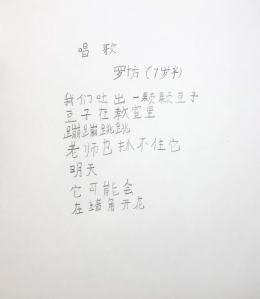 唱歌
罗坊（7岁半）
我们吐出一颗颗豆子
豆子在教室里
蹦蹦跳跳
老师也抓不住它
明天
它可能会
在墙角开花